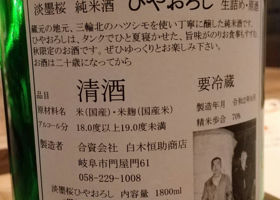 淡墨桜 純米酒 ひやおろし 生詰め・原酒
蔵の元地元、三輪北のハツシモを使い丁寧に醸した純米酒です。
ひやおろしは、タンクでひと夏寝かせた、旨味がのりお食事もすすむ
秋限定のお酒です。ぜひゆっくりとお楽しみ下さい。
お酒は二十歳になってから
清酒
要冷蔵
原材料名 米(国産)・米麹(国産米)
製造年月
アルコール分 18.0度以上19.0度未満
精米歩合 70%
製造者 合資会社 白木恒助商店
岐阜市門屋門61
058-229-1008
淡墨桜ひやおろし 内容量 1800ml